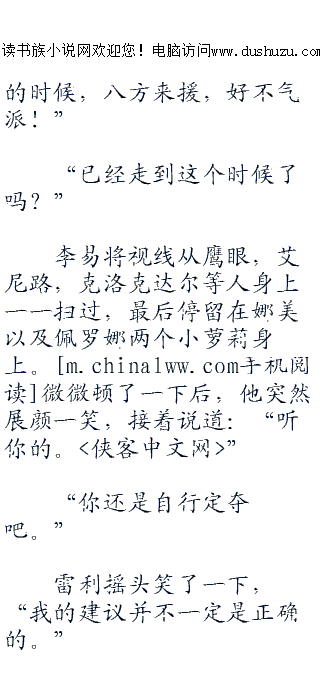 读书族小说网欢迎您！电脑访问www.dushuzu.com
的时候，八方来援，好不气
派！”
“已经走到这个时候了
吗？”
李易将视线从鹰眼，艾
尼路，克洛克达尔等人身上
一一扫过，最后停留在娜美
以及佩罗娜两个小萝莉身
上。[m.china1ww.com手机阅
读]微微顿了一下后，他突然
展颜一笑，接着说道：“听
你的。<侠客中文网>”
“你还是自行定夺
吧。”
雷利摇头笑了一下，
“我的建议并不一定是正确
的。”